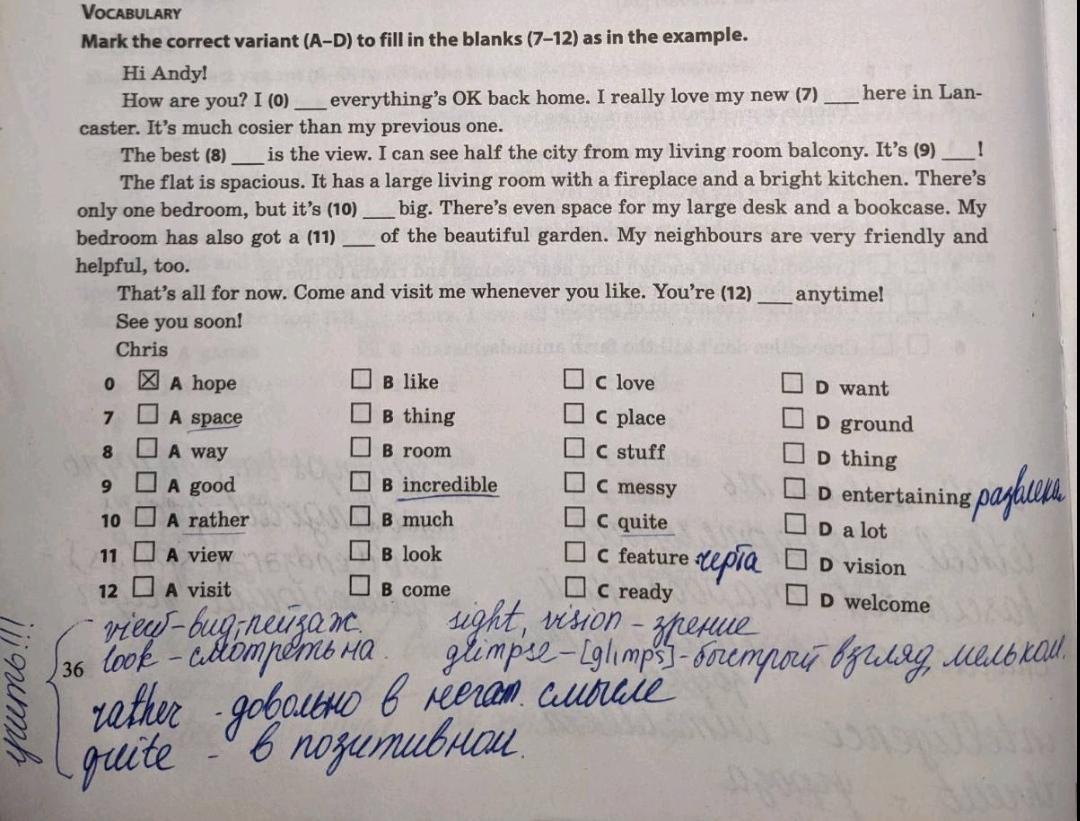 VOCABULARY
Mark the correct variant (A–D) to fill in the blanks (7–12) as in the example.
Hi Andy!
How are you? I (0) ___ everything's OK back home. I really love my new (7) ___ here in Lan-
caster. It's much cosier than my previous one.
The best (8) ___ is the view. I can see half the city from my living room balcony. It's (9) ___!
The flat is spacious. It has a large living room with a fireplace and a bright kitchen. There's
only one bedroom, but it's (10) ___ big. There's even space for my large desk and a bookcase. My
bedroom has also got a (11) ___ of the beautiful garden. My neighbours are very friendly and
helpful, too.
That's all for now. Come and visit me whenever you like. You're (12) ___ anytime!
See you soon!
Chris
0 ☒ A hope ☐ B like ☐ C love ☐ D want
7 ☐ A space ☐ B thing ☐ C place ☐ D ground
8 ☐ A way ☐ B room ☐ C stuff ☐ D thing
9 ☐ A good ☐ B incredible ☐ C messy ☐ D entertaining развлека
10 ☐ A rather ☐ B much ☐ C quite ☐ D a lot
11 ☐ A view ☐ B look ☐ C feature черта ☐ D vision
12 ☐ A visit ☐ B come ☐ C ready ☐ D welcome
учить!!!
view - вид, пейзаж. sight, vision - зрение
36 look - смотреть на. glimpse - [glimps] - быстрый взгляд, мельком.
rather - довольно в негат. смысле
quite - в позитивном.